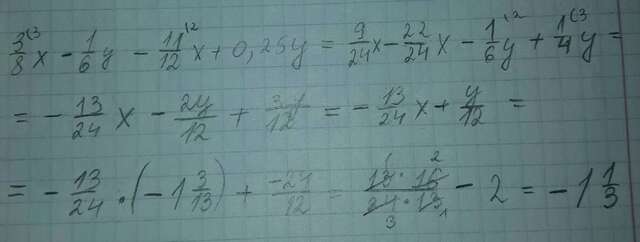 3/8 (3 x - 1/6 y - 11/12 (2 x + 0,25y = 9/24 x - 22/24 x - 1/6 (2 y + 1/4 (3 y =
= - 13/24 x - 2y/12 + 3y/12 = - 13/24 x + y/12 =
= - 13/24 · (-1 3/13) + -24/12 = 13 · 16/24 · 13 1 2 3 1 - 2 = -1 1/3